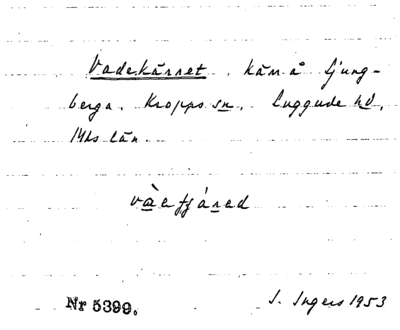 Vadekärret. kärr å Ljung-
berga. Kropps sn. Luggude hd.
Mhs län.
vàefjár̲ed
Nr 5399. I. Ingers 1953